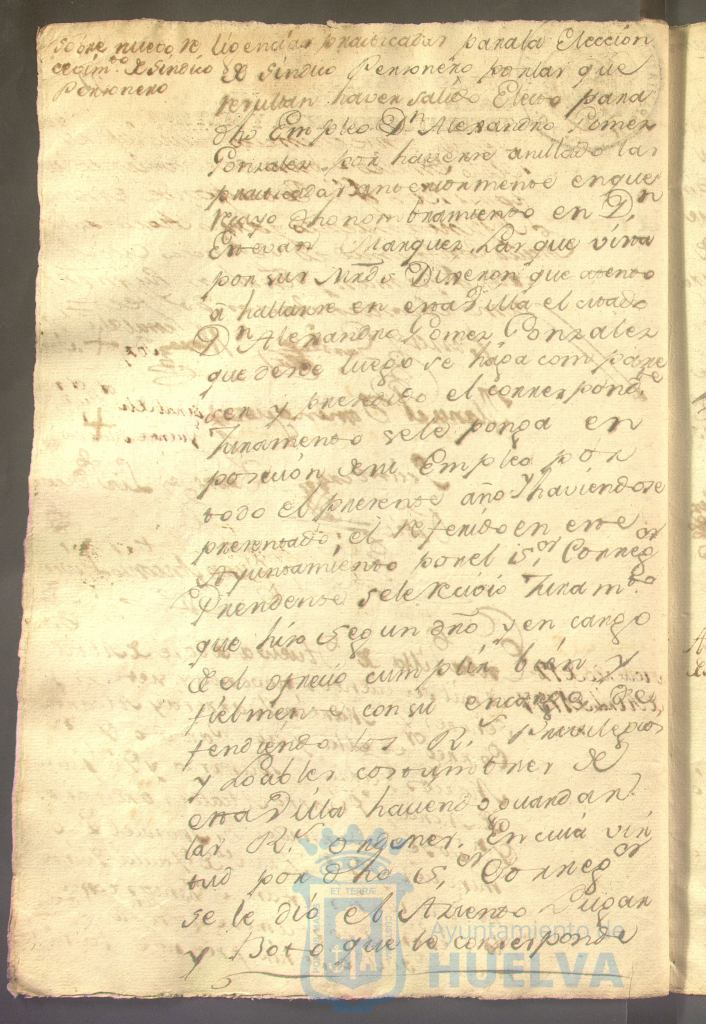 sobre nuevo re
cevim.to de Sindico
Personero
lixencias practicadas para la Eleccion
de Sindico Personero por las que
resultan haver salido Electo para
dho Empleo Dn. Alexandro Gomez
Gonzalez por haverse anulado las
practicadas anteriormente en que
recayo dho nombramiento en Dn.
Estevan Marquez. Las que vistas
por sus Mrds Dixeron que atento
á hallarse en esta Villa el citado
Dn. Alexandro Gomez Gonzalez
que desde luego se haga compare
ser y prestando el correspond.te
Juramento se le ponga en
posecion de su Empleo por
todo el presente año y haviendose
presentado el referido en este
Ayuntamiento por el Sor. Corregor
Precidente se le recivio Juram.to
que hizo segun dro y en cargo
de el ofrecio cumplir bien y
fielmente con su encargo De
fendiendo los Rs. Privilegios
y Loables costumbres de
esta Villa haciendo guardar
las Rs. ordenes. En cuia vir
tud por dho Sor. Corregor
se le dió el Asiento Lugar
y Boto que le corresponde
ET TERRÆ
Ayuntamiento de
HUELVA